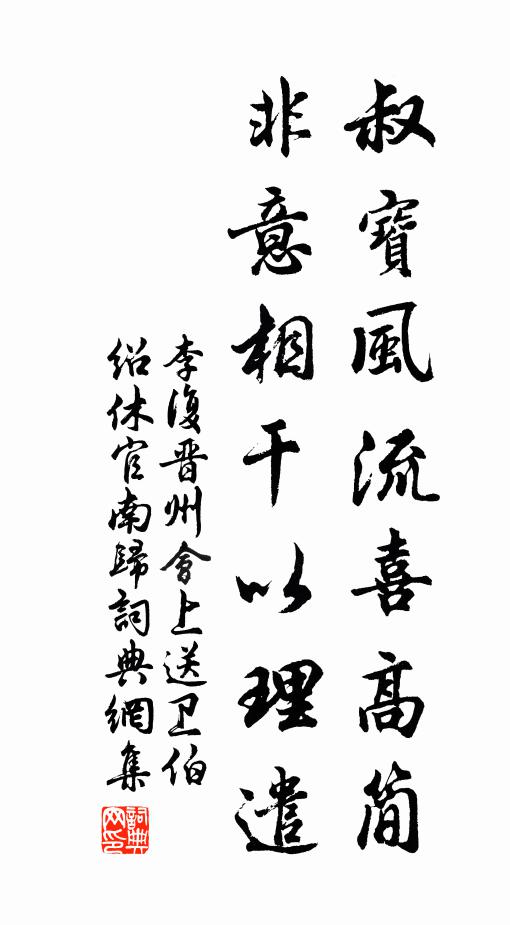 叔寶風流喜高简
非意相干以理遣
李復晋州會上送卫伯
绍休官南歸詞典網集
詞典
网印